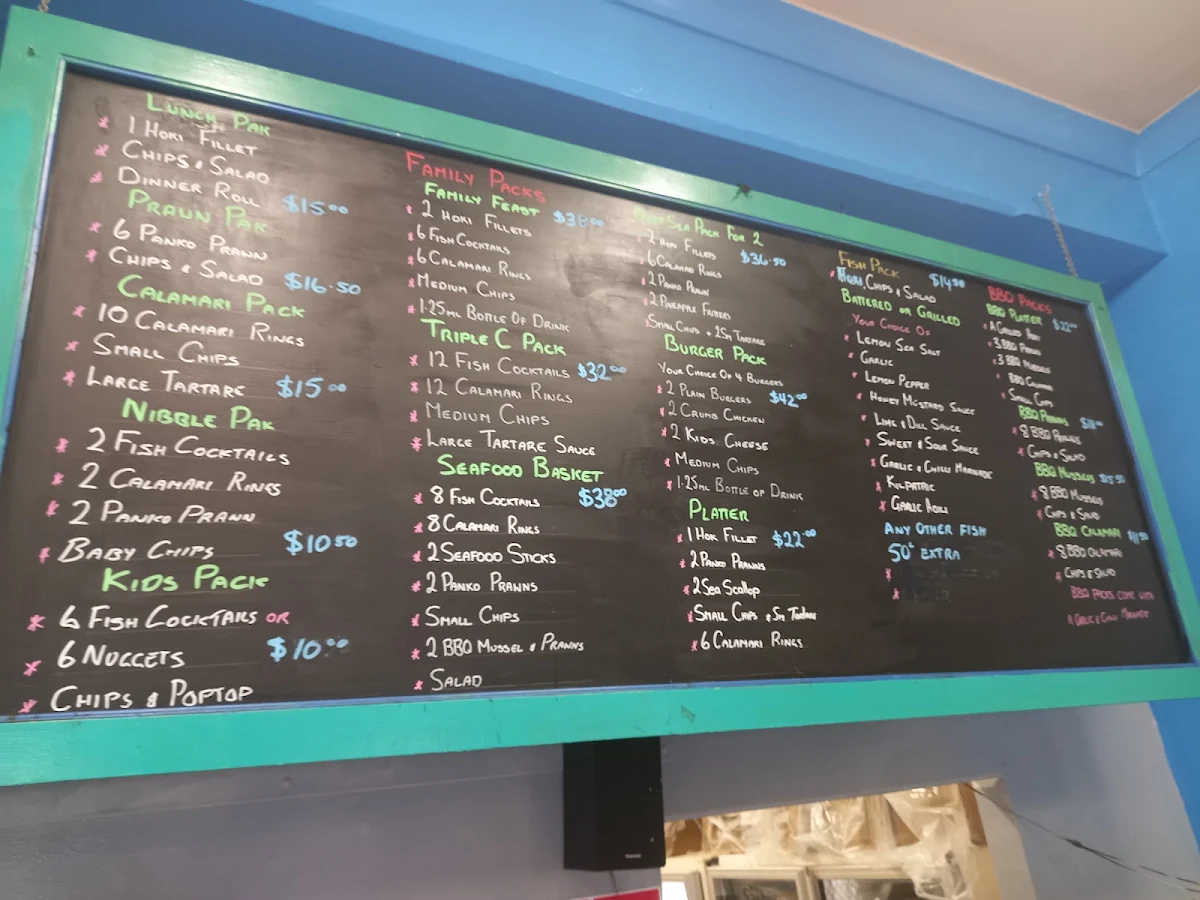 LUNCH PAK
* 1 HOKI FILLET
* CHIPS & SALAD
* DINNER ROLL $15.00
PRAUN PAK
* 6 PANKO PRAWN
* CHIPS & SALAD $16.50
CALAMARI PACK
* 10 CALAMARI RINGS
* SMALL CHIPS
* LARGE TARTARE $15.00
NIBBLE PAK
* 2 FISH COCKTAILS
* 2 CALAMARI RINGS
* 2 PANKO PRANN
* BABY CHIPS $10.50
KIDS PACK
* 6 FISH COCKTAILS OR
* 6 NUGGETS $10.00
* CHIPS & POPTOP
FAMILY PACKS
FAMILY FEAST $38.00
* 2 HOKI FILLETS
* 6 FISH COCKTAILS
* 6 CALAMARI RINGS
* MEDIUM CHIPS
* 1.25ML BOTTLE OF DRINK
TRIPLE C PACK
* 12 FISH COCKTAILS $32.00
* 12 CALAMARI RINGS
* MEDIUM CHIPS
* LARGE TARTARE SAUCE
SEAFOOD BASKET
* 8 FISH COCKTAILS $38.00
* 8 CALAMARI RINGS
* 2 SEAFOOD STICKS
* 2 PANKO PRAWNS
* SMALL CHIPS
* 2 BBQ MUSSEL & PRAWNS
* SALAD
SEA PACK FOR 2
* 2 HOKI FILLETS $36.50
* 6 CALAMARI RINGS
* 2 PANKO PRAWN
* 2 PINEAPPLE FRITTERS
* SMALL CHIPS + 2SM TARTARE
BURGER PACK
YOUR CHOICE OF 4 BURGERS
* 2 PLAIN BURGERS $42.00
* 2 CRUMB CHICKEN
* 2 KIDS CHEESE
* MEDIUM CHIPS
* 1.25ML BOTTLE OF DRINK
PLATTER
* 1 HOK FILLET $22.00
* 2 PANKO PRAWNS
* 2 SEA SCALLOP
* SMALL CHIPS & SM TARTARE
* 6 CALAMARI RINGS
FISH PACK $14.50
* HOKI, CHIPS & SALAD
BATTERED OR GRILLED
YOUR CHOICE OF
* LEMON SEA SALT
* GARLIC
* LEMON PEPPER
* HONEY MUSTARD SAUCE
* LIME & DILL SAUCE
* SWEET & SOUR SAUCE
* GARLIC & CHILLI MARINADE
* KILPATRIC
* GARLIC AIOLI
ANY OTHER FISH
50c EXTRA
*
*
BBQ PACKS
BBQ PLATTER $22.00
* 1 GRILLED HOKI
* 3 BBQ PRAWNS
* 3 BBQ MUSSELS
* BBQ CALAMARI
* SMALL CHIPS
BBQ PRAWNS
* 8 BBQ PRAWNS
* CHIPS & SALAD
BBQ MUSSELS
* 8 BBQ MUSSELS
* CHIPS & SALAD
BBQ CALAMARI
* 8 BBQ CALAMARI
* CHIPS & SALAD
BBQ PACKS COME WITH
A GARLIC & CHILLI MARINADE